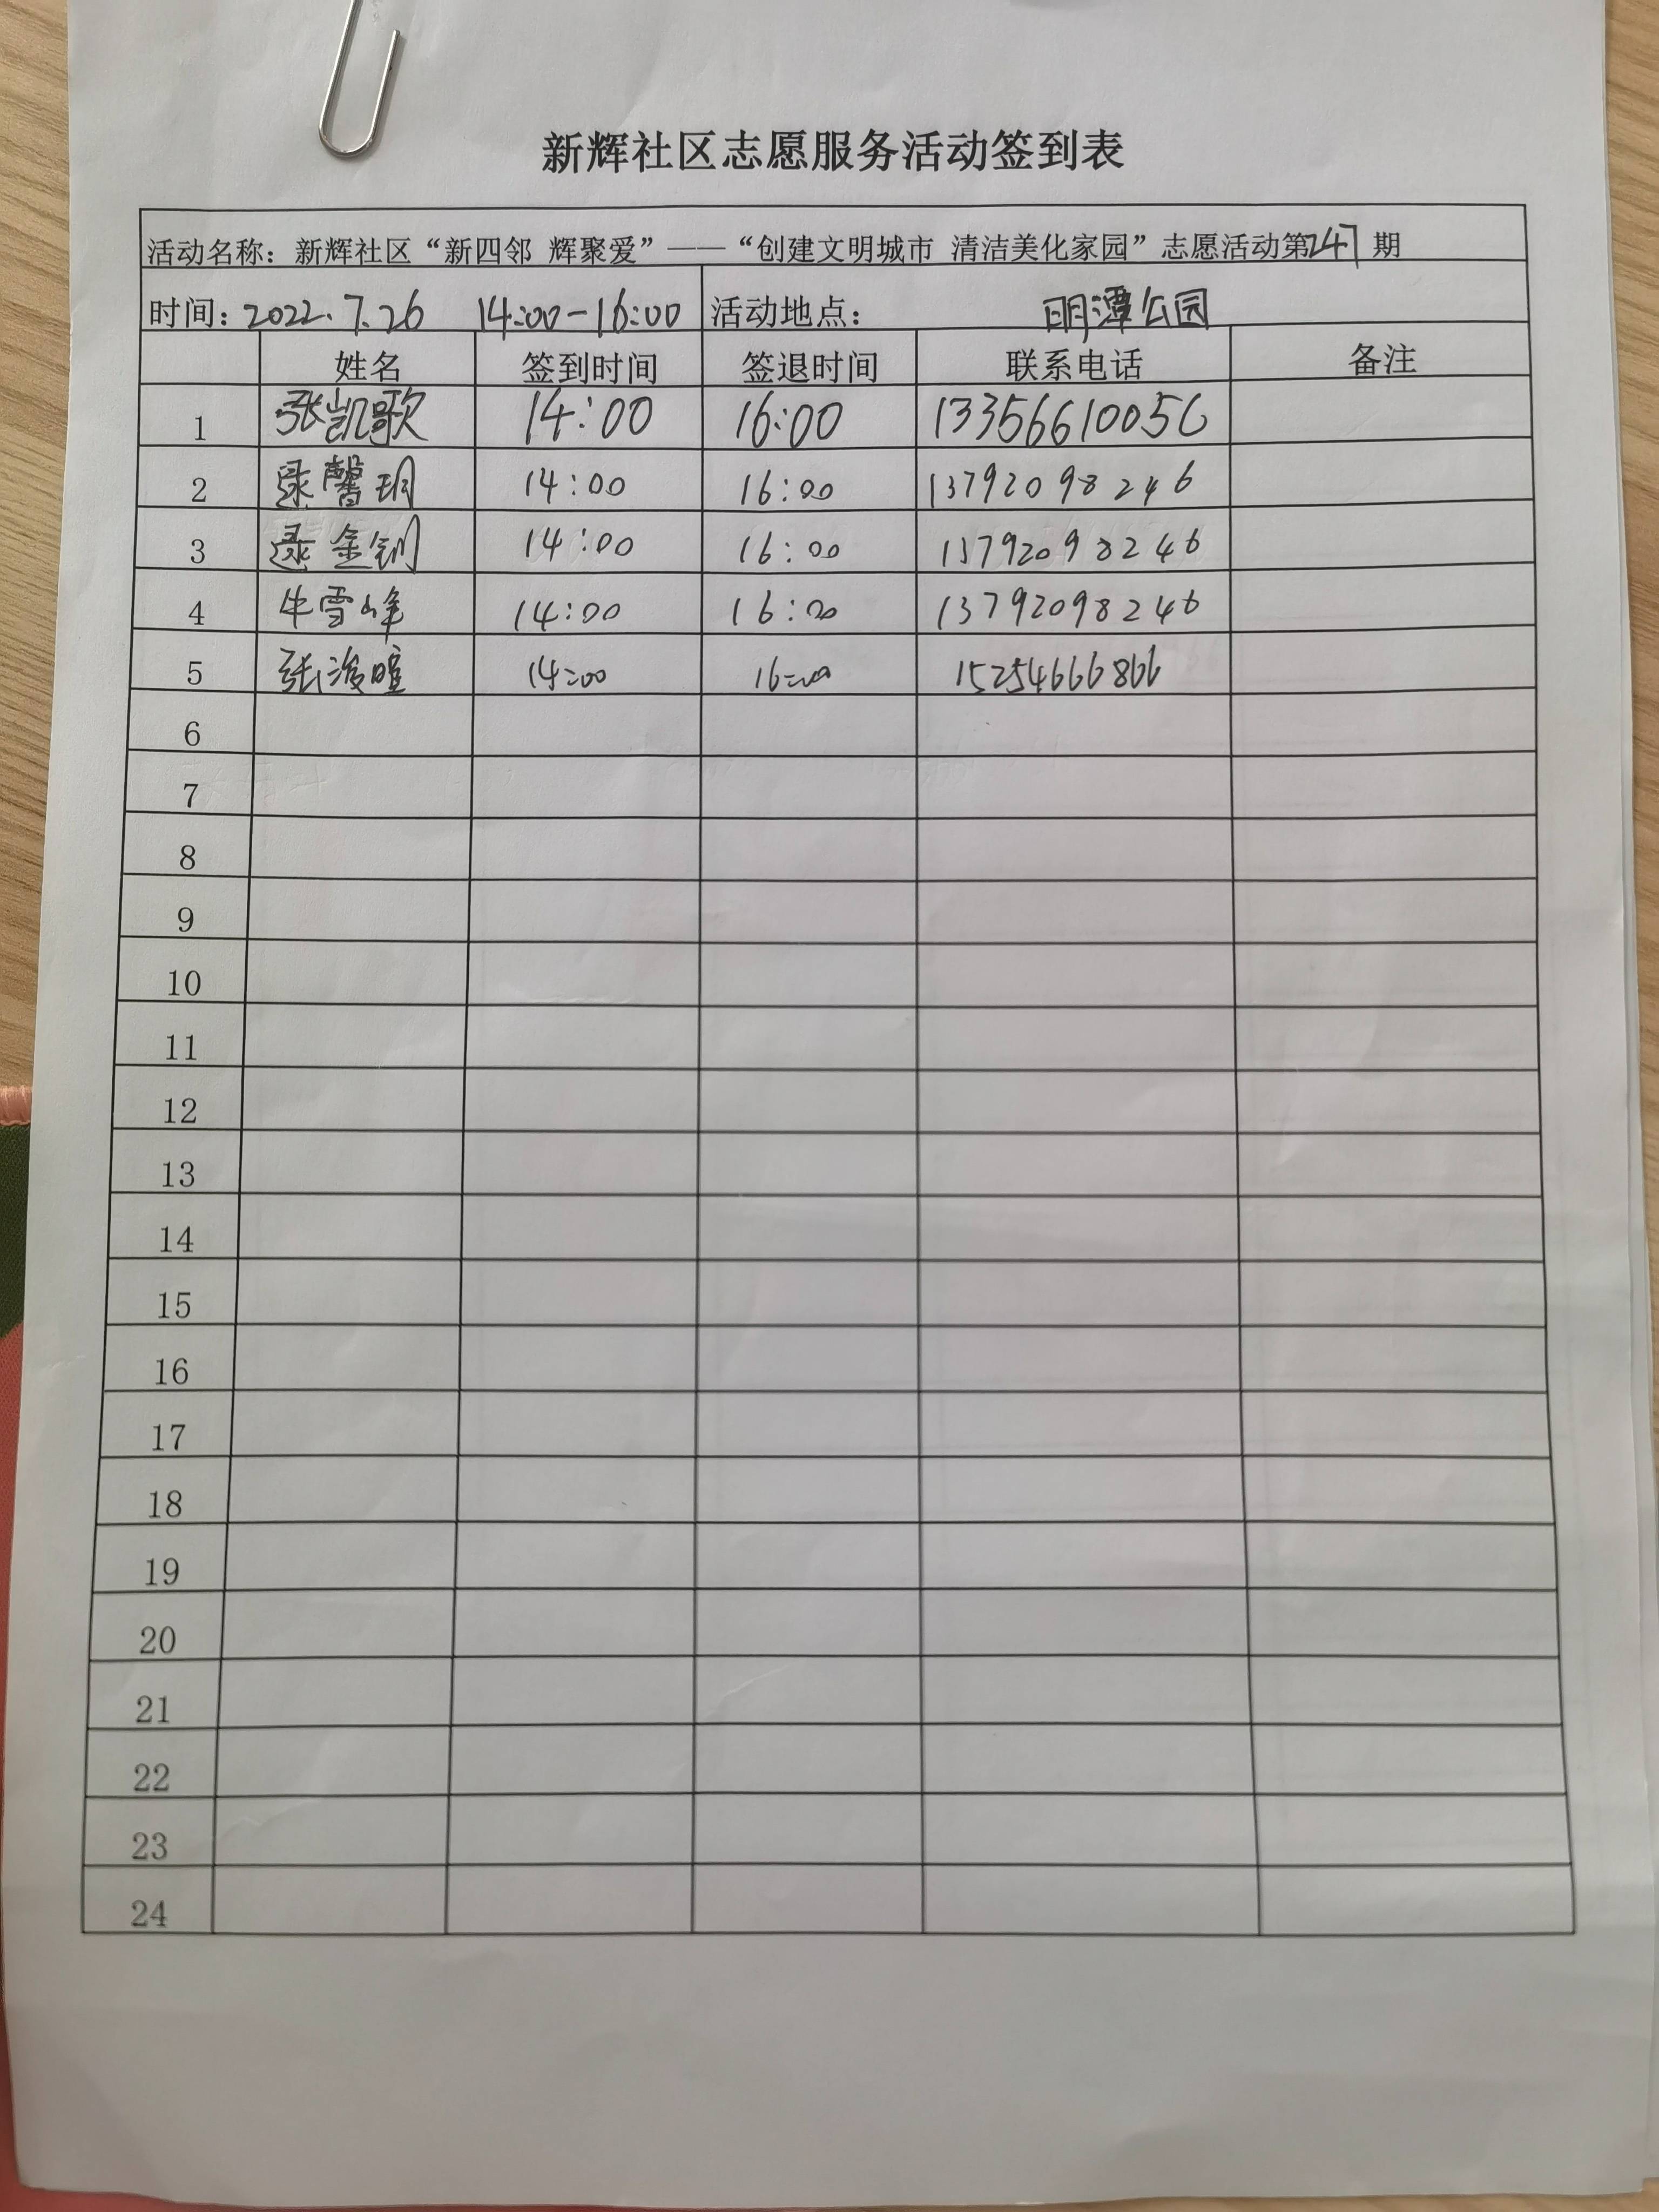 新辉社区志愿服务活动签到表
活动名称：新辉社区“新四邻 辉聚爱”——“创建文明城市 清洁美化家园”志愿活动第247期
时间：2022.7.26 14:00-16:00 活动地点： 明潭公园
姓名 签到时间 签退时间 联系电话 备注
1 张凯歌 14:00 16:00 13356610056
2 逯馨玥 14:00 16:00 13792098246
3 逯金钊 14:00 16:00 13792098246
4 牛雪峰 14:00 16:00 13792098246
5 张浚暄 14:00 16:00 15254666866
6
7
8
9
10
11
12
13
14
15
16
17
18
19
20
21
22
23
24